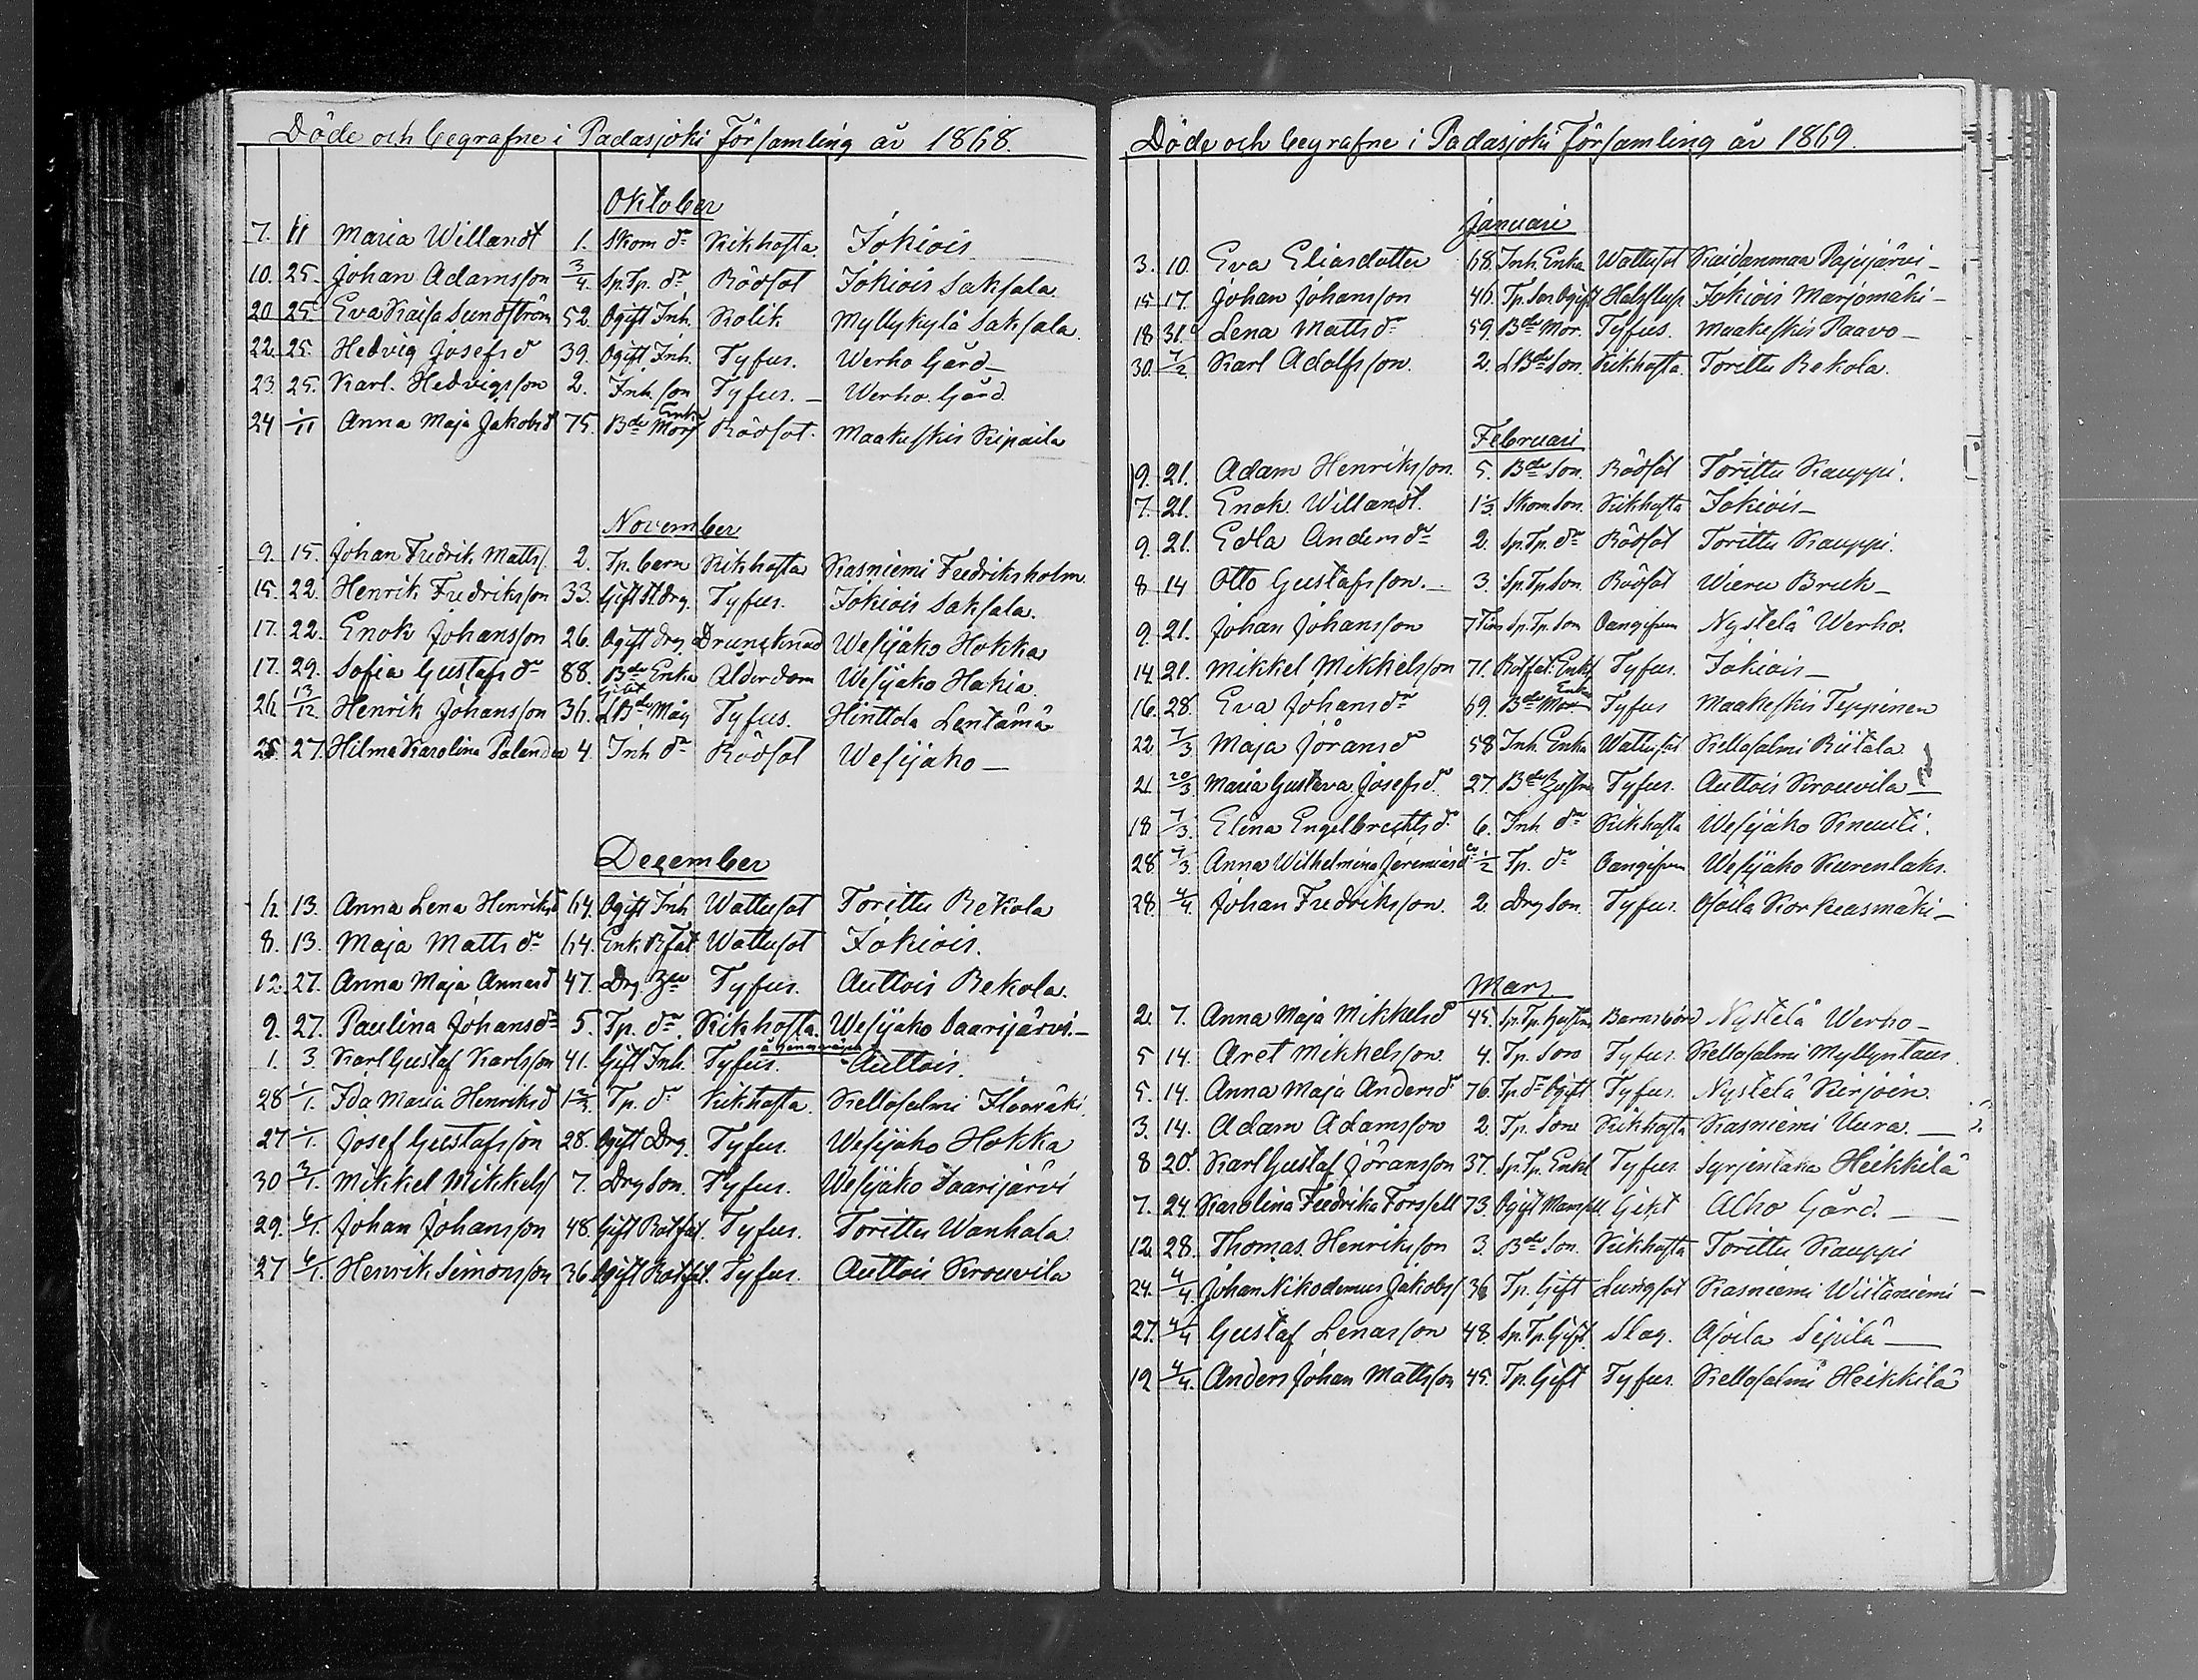 Döde och begrafne i Padasjoki Församling år 1868.
Oktober
7. 11 Maria Willandt 1. Skom dr Kikhosta Jokiois
10. 25. Johan Adamsson 3/4 Sp.Tp. dr Rödsot Jokiois Saksala
20 25. Eva Kaisa Sundström 52. Ogift Inh. Kolik Myllykylä Saksala.
22. 25. Hedvig Josefsd 39. Ogift Inh. Tyfus. Werho Gård
23. 25. Karl. Hedvigsson 2. Inh. son Tyfus. Werho. Gård
24 1/11 Anna Maja Jakobsd 75. Bde Mor Enka Rödsot. Maakeskis Kipaila
November
9. 15. Johan Fredrik Matts. 2. Tp. barn Kikhosta Kasniemi Fredriksholm
15. 22. Henrik Fredriksson 33. Gift St.drg. Tyfus. Jokiois Saksala.
17. 22. Enok Johansson 26. Ogift drg. Drunknad Wesijako Hokka
17. 29. Sofia Gustafs dr 88. Bde Enka Ålderdom Wesijako Hakia.
26 13/12 Henrik Johansson 36. Gift LBde Måg Tyfus. Hinttola Lentämä
25. 27. Hilma Karolina Palander 4. Inh dr Rödsot Wesijako
December
6. 13. Anna Lena Henriksd 64. Ogift Inh Wattusot Torittu Rekola
8. 13. Maja Matts dr 64. Enk. Rfat Wattusot Jokiois.
12. 27. Anna Maja Annasd 47. Drg. Tyfus. Auttois Rekola.
9. 27. Paulina Johansdr 5. Tp. dr Kikhosta. Wesijako Saarijärvi.
1. 3 Karl Gustaf Karlsson 41. Gift Inh. Tyfus. Auttois.
28 1/1. Ida Maria Henriksd 1 2/3. Tp. dr Kikhosta. Kellosalmi
27 1/1. Josef Gustafsson 28. Ogift Drg. Tyfus. Wesijako Hokka
30 3/1. Mikkel Mikkels 7. Drg Son. Tyfus. Wesijako Saarijärvi
29. 6/1. Johan Johansson 48. Gift Rotfat. Tyfus. Torittu Wanhala
27 6/1. Henrik Simonsson 36 Ogift Rotfat. Tyfus. Auttois Krouvila
Döde och begrafne i Padasjoki Församling år 1869.
Januari
3. 10. Eva Eliasdotter 68. Inh. Enka Wattusot Kaidanmaa Pajujärvi
15 17. Johan Johansson 46. Tp. Son Ogift Jokiois Marjomäki
18 31. Lena Matts dr 59. Bde Mor. Tyfus. Maakeskis Paavo
30. 7/2. Karl Adolfsson. 2. LBde Son. Kikhosta. Torittu Rekola.
Februari
9. 21. Adam Henriksson. 5. Bde Son. Rödsot Torittu Kauppi.
7. 21. Enok Willandt. 1 1/3. Skom.son. Kikhosta Jokiois
9. 21. Edla Anders dr 2. Sp.Tp. dr Rödsot Torittu Kauppi.
8 14 Otto Gustafsson. 3. Sp.Tp.Son. Rödsot Wieru Bruk
9. 21. Johan Johansson 7 Tim Sp.Tp.Son Oangifven Nystelä Werho.
14. 21. Mikkel Mikkelsson 71. Rotfat. Enkl Tyfus. Jokiois
16. 28. Eva Johans dr 69. Bde Mor Enka Tyfus Maakeskis Teppinen
22 7/3 Maja Jöransd 58 Inh. Enka Wattusot Kellosalmi Riitala
21. 20/3 Maria Gustava Josefs dr 27. Bde Hustru Tyfus. Auttois Krouvila
18 7/3. Elina Engelbrechts dr 6. Inh dr Kikhosta Wesijako Knuuti.
28 7/3. Anna Wilhelmina Jeremiasd 1/2 Tp. dr Oangifven Wesijako Kurenlaks.
28. 4/4. Johan Fredriksson. 2. Drg Son. Tyfus. Osoila Korkeasmäki
Mars.
2. 7. Anna Maja Mikkelsd 45. Sp.Tp. Hustru Barnsbörd Nystelä Werho
5 14. Aret Mikkelsson. 4. Tp. Son Tyfus. Kellosalmi Myllyntaus.
5. 14. Anna Maja Andersd 76. Tp.dr Ogift Tyfus. Nystelä Kirjoin.
3. 14. Adam Adamsson 2. Tp. Son Kikhosta Kasniemi Uura.
8 20. Karl Gustaf Jöransson 37. Sp.Tp. Enkl Tyfus. Syrjintaka Heikkilä
7. 24. Karolina Fredrika Forssell 73. Ogift Mamsell Gikt Alho Gård.
12. 28. Thomas Henriksson 3. Bde Son. Kikhosta Torittu Kauppi
24. 4/4. Johan Nikodemus Jakobs 36 Tp. Gift Lungsot Kasniemi Wiitaniemi
27. 4/4 Gustaf Lenasson 48. Sp.Tp.Gift. Slag. Osoila Sipilä
12 4/4. Anders Johan Mattsson 45. Tp. Gift Tyfus. Kellosalmi Heikkilä